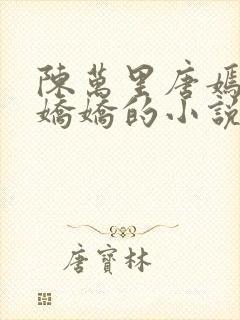 陳萬里唐嫣
嬌嬌的小說
唐寶林